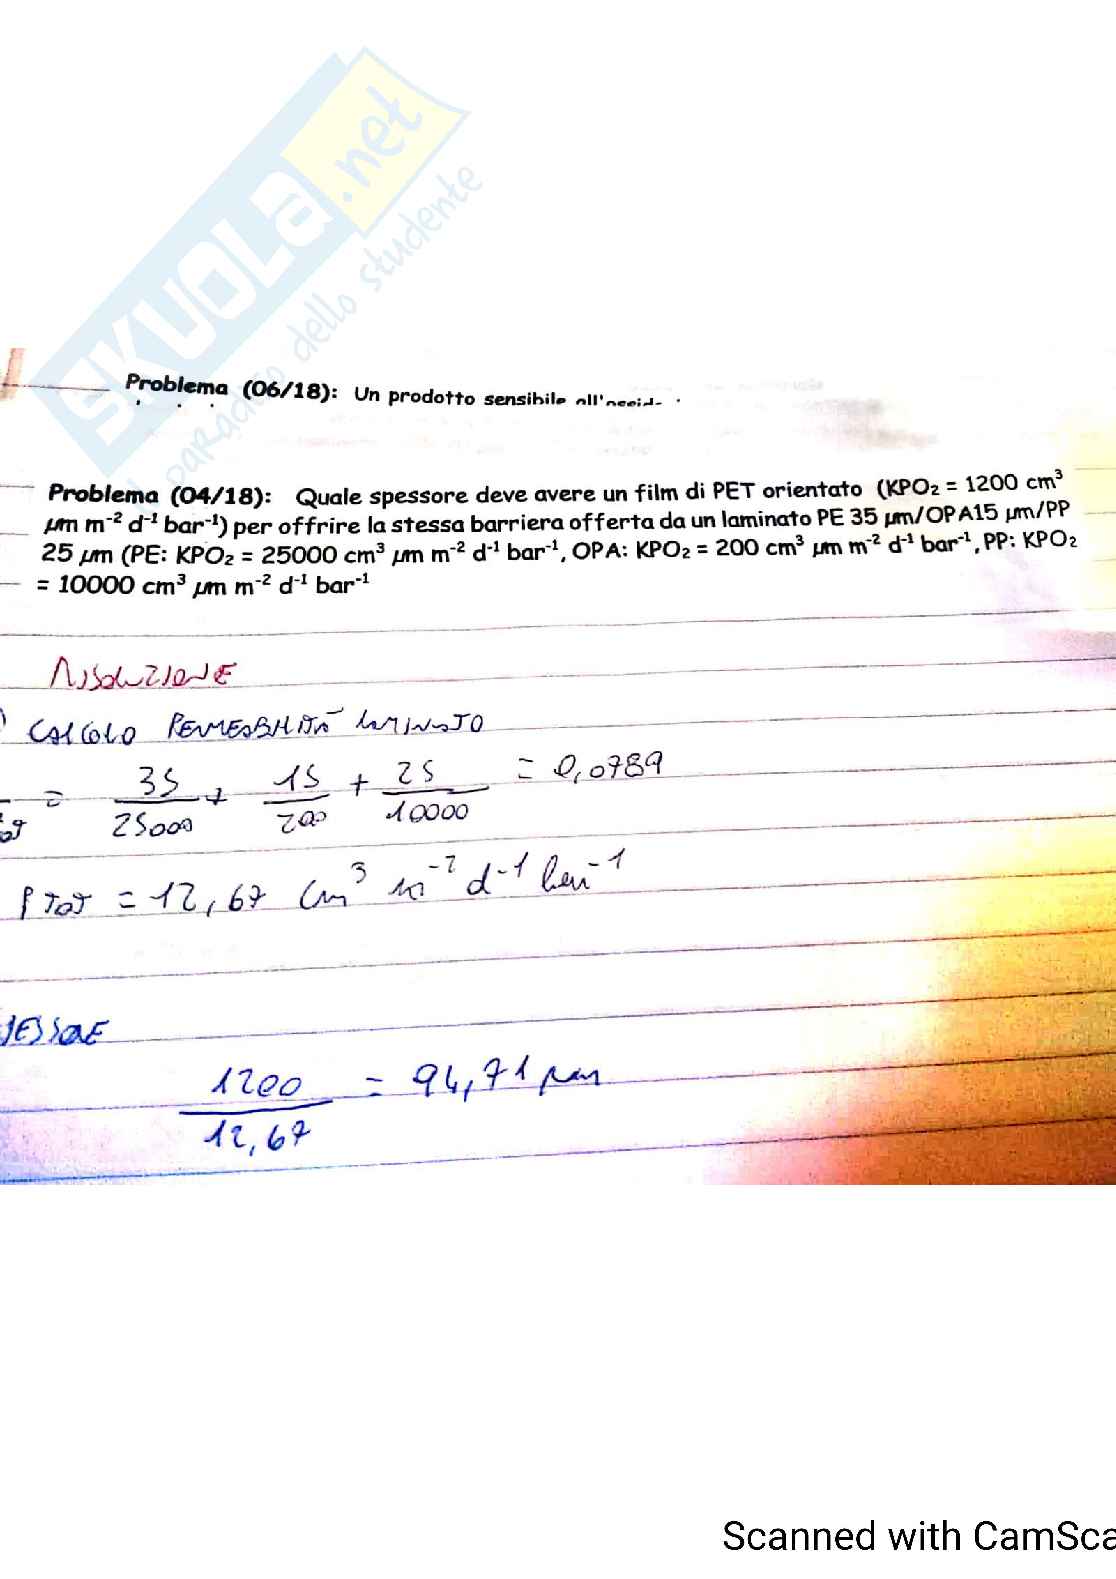 SKUOLA.net
il paradiso dello studente
Problema (06/18): Un prodotto sensibile
Problema (04/18): Quale spessore deve avere un film di PET orientato (KPO₂ = 1200 cm³
µm m⁻² d⁻¹ bar⁻¹) per offrire la stessa barriera offerta da un laminato PE 35 µm/OPA15 µm/PP
25 µm (PE: KPO₂ = 25000 cm³ µm m⁻² d⁻¹ bar⁻¹, OPA: KPO₂ = 200 cm³ µm m⁻² d⁻¹ bar⁻¹, PP: KPO₂
= 10000 cm³ µm m⁻² d⁻¹ bar⁻¹
RISOLUZIONE
) CALCOLO PERMEABILITÀ LAMINATO
= 35/25000 + 15/200 + 25/10000 = 0,0789
P TOT = 12,67 cm³ m⁻² d⁻¹ bar⁻¹
1200/12,67 = 94,71 µm
Scanned with CamSca